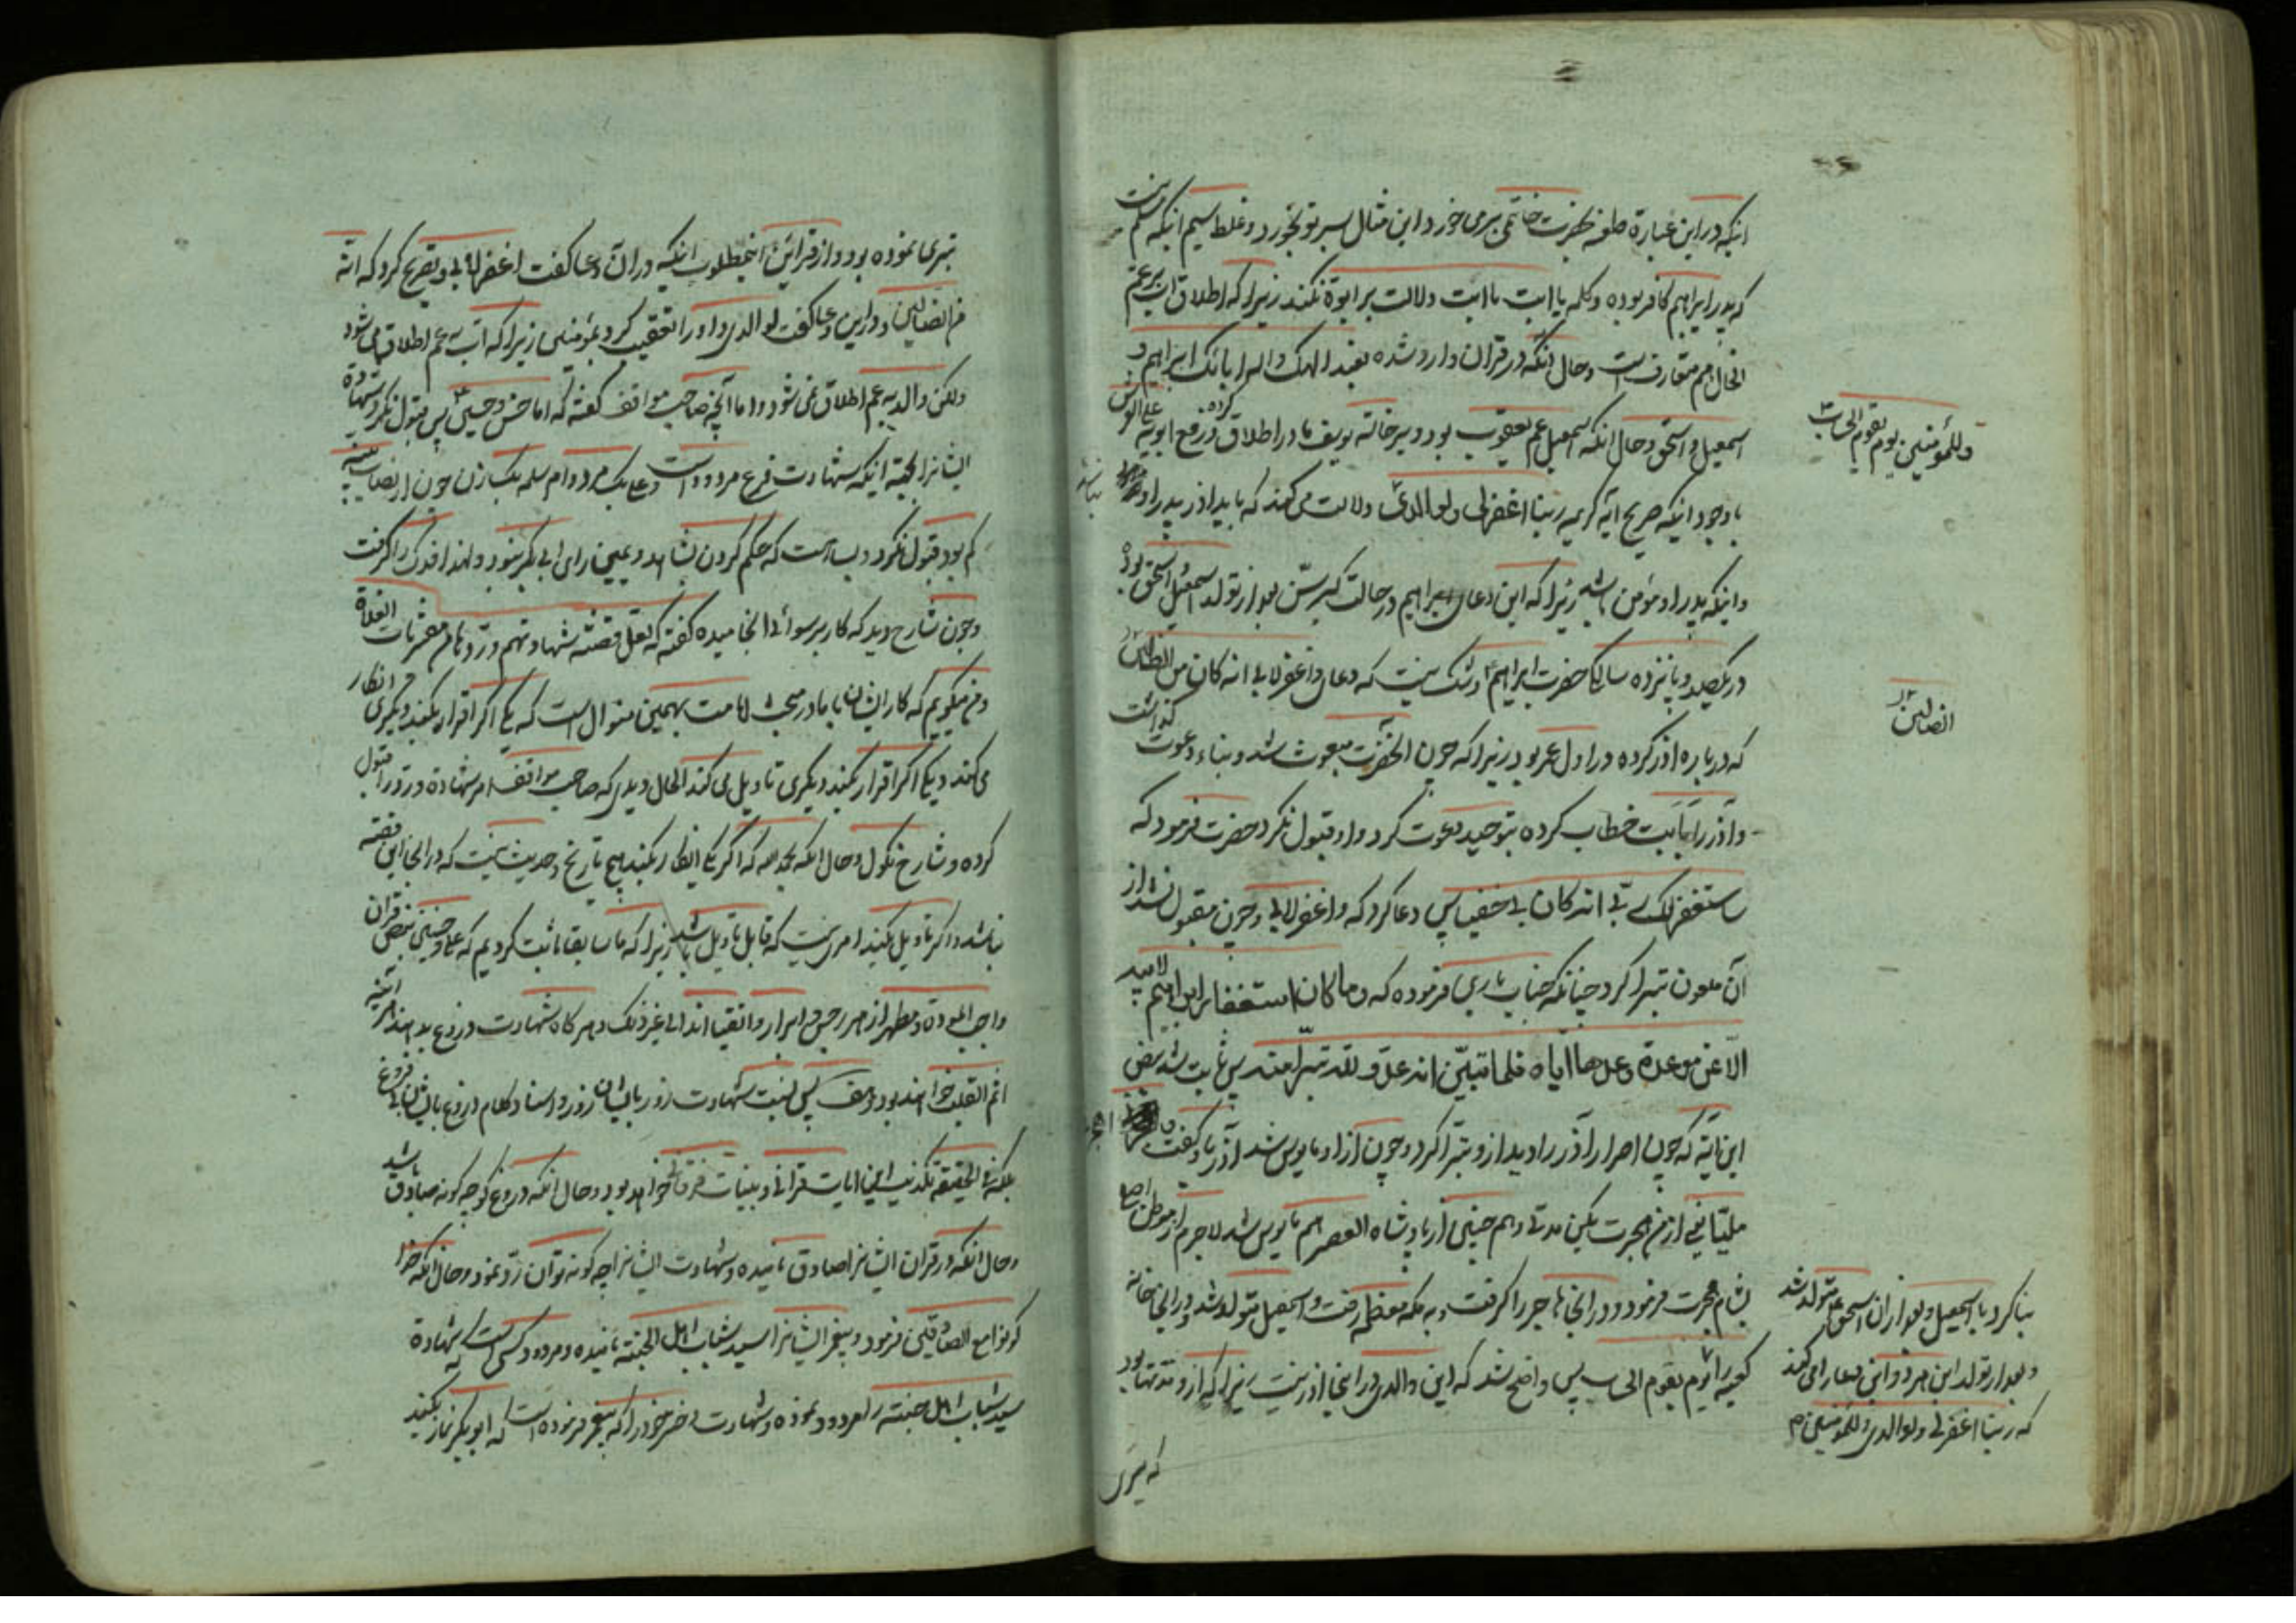 اینکه در این عبارة طعنه بحضرت خاتمی بری خورد و این مثال بسر تو نخورد و غلط سیم اینکه مسلم نیست
که پدر ابراهیم کافر بوده و کلمه یا ابت یا ابت دلالت بر ابوة نکند زیرا که اطلاق اب بر عم
الحال هم متعارف است و حال آنکه در قران وارد شده نعبد الهک و اله ابائک ابراهیم و
اسمعیل و اسحق و حال آنکه اسمعیل عم یعقوب بود و بر خاله یوسف مادر اطلاق کرده و رفع ابویه علی العرش
با وجود اینکه صریح آیه کریمه ربنا اغفر لی و لوالدی دلالت می کند که باید آذر پدر او نباشد
وللمؤمنین یوم یقوم الحساب
و اینکه پدر او مؤمن باشد زیرا که این دعای ابراهیم در حالت کبر سن بعد از تولد اسمعیل و اسحق بود
در یکصد و پانزده سالگی حضرت ابراهیم و شک نیست که دعای و اغفر لابی انه کان من الضالین
الضالین
که درباره آذر کرده در اول عمر بود زیرا که چون آنحضرت مبعوث شد و بناء دعوت گذاشت
و آذر را یا ابت خطاب کرده بتوحید دعوت کرد و او قبول نکرد حضرت فرمود که
ساستغفر لک ربی انه کان بی حفیا پس دعا کرد که و اغفر لابی و چون مقبول نشد از
آن ملعون تبرا کرد چنانکه جناب باری فرموده که و ما کان استغفار ابراهیم لابیه
الا عن موعدة وعدها ایاه فلما تبین انه عدو لله تبرا منه پس ثابت شد بنص
این آیه که چون اصرار آذر را دید از او تبرا کرد و چون از او مایوس شد و آذر باو گفت و اهجرنی
ملیا یعنی از من هجرت بکن مدتی و هم چنین از پادشاه العصر هم مایوس شد لاجرم از موطن اصلی
بشام هجرت فرمود و در آنجا هاجر را گرفت و به مکه معظمه رفت و اسمعیل متولد شد و در آنجا خانه
بنا کرد با اسمعیل و بعد از آن اسحق متولد شد
و بعد از تولد این هر دو این دعا را می کند
که ربنا اغفر لی ولوالدی وللمؤمنین
کعبه را یوم یقوم الحساب پس واضح شد که این والدی در اینجا آذر نیست زیرا که از او مدتها بود
که تبری
تبری نموده بود و از قرائن اینمطلوب اینکه در آن دعا گفت اغفر لابی و تصریح کرد که انه
من الضالین و در این دعا گفت لوالدی و او را تعقیب کرد بمؤمنین زیرا که اب به عم اطلاق می شود
ولکن والد به عم اطلاق نمی شود و اما آنچه صاحب مواقف گفته که اما حسن و حسین پس قبول نکرد شهادة
ایشانرا بجهة اینکه شهادت فرع مردود است و علی یک مرد و ام سلمه یک زن چون از نصاب بینه
کم بود قبول نکرد و بسا هست که حکم کردن بشاهد و یمین رای ابی بکر نبود و لهذا فدک را گرفت
و چون شارح دید که کار برسوائی انجامیده گفته که لعل قصه شهادتهم و ردها من مفتریات الغلاة
و من میگویم که کار ایشان با ما در مبحث امامت بهمین منوال است که یکی اگر اقرار میکند دیگری انکار
می کند و یکی اگر اقرار میکند دیگری تاویل می کند الحال دیدی که صاحب مواقف امر شهادة و رد را قبول
کرده و شارح نکول و حال آنکه بحمد لله که اگر یکی انکار بکند هیچ تاریخ و حدیث نیست که در آنجا این قصه
نباشد و اگر تاویل بکنید امری نیست که قابل تاویل باشد زیرا که ما سابقا ثابت کردیم که علی و حسنین بنص قران
واجب المودة و مطهر از هر رجس و ابرار و اتقیا اند الی غیر ذلک و هر گاه شهادت دروغ بدهند هر آینه
اثم القلب خواهند بود و منصف پس نسبت شهادت زور بایشان زور و اسناد کلام دروغ بایشان بی فروغ
بلکه فی الحقیقه تکذیب این ایات قرانی و بینات فرقانی خواهد بود و حال آنکه دروغ گو چه گونه صادق باشد
و حال آنکه در قران ایشانرا صادق نامیده و شهادت ایشانرا چه گونه توان رد نمود و حال آنکه خدا
کونوا مع الصادقین فرمود و پیغمبر ایشانرا سید شباب اهل الجنه نامیده و مردود کسی است که شهادة
سید شباب اهل جنه را مردود نموده و شهادت دختر خود را که پیغمبر فرموده است که ابو بکر نماز بکند